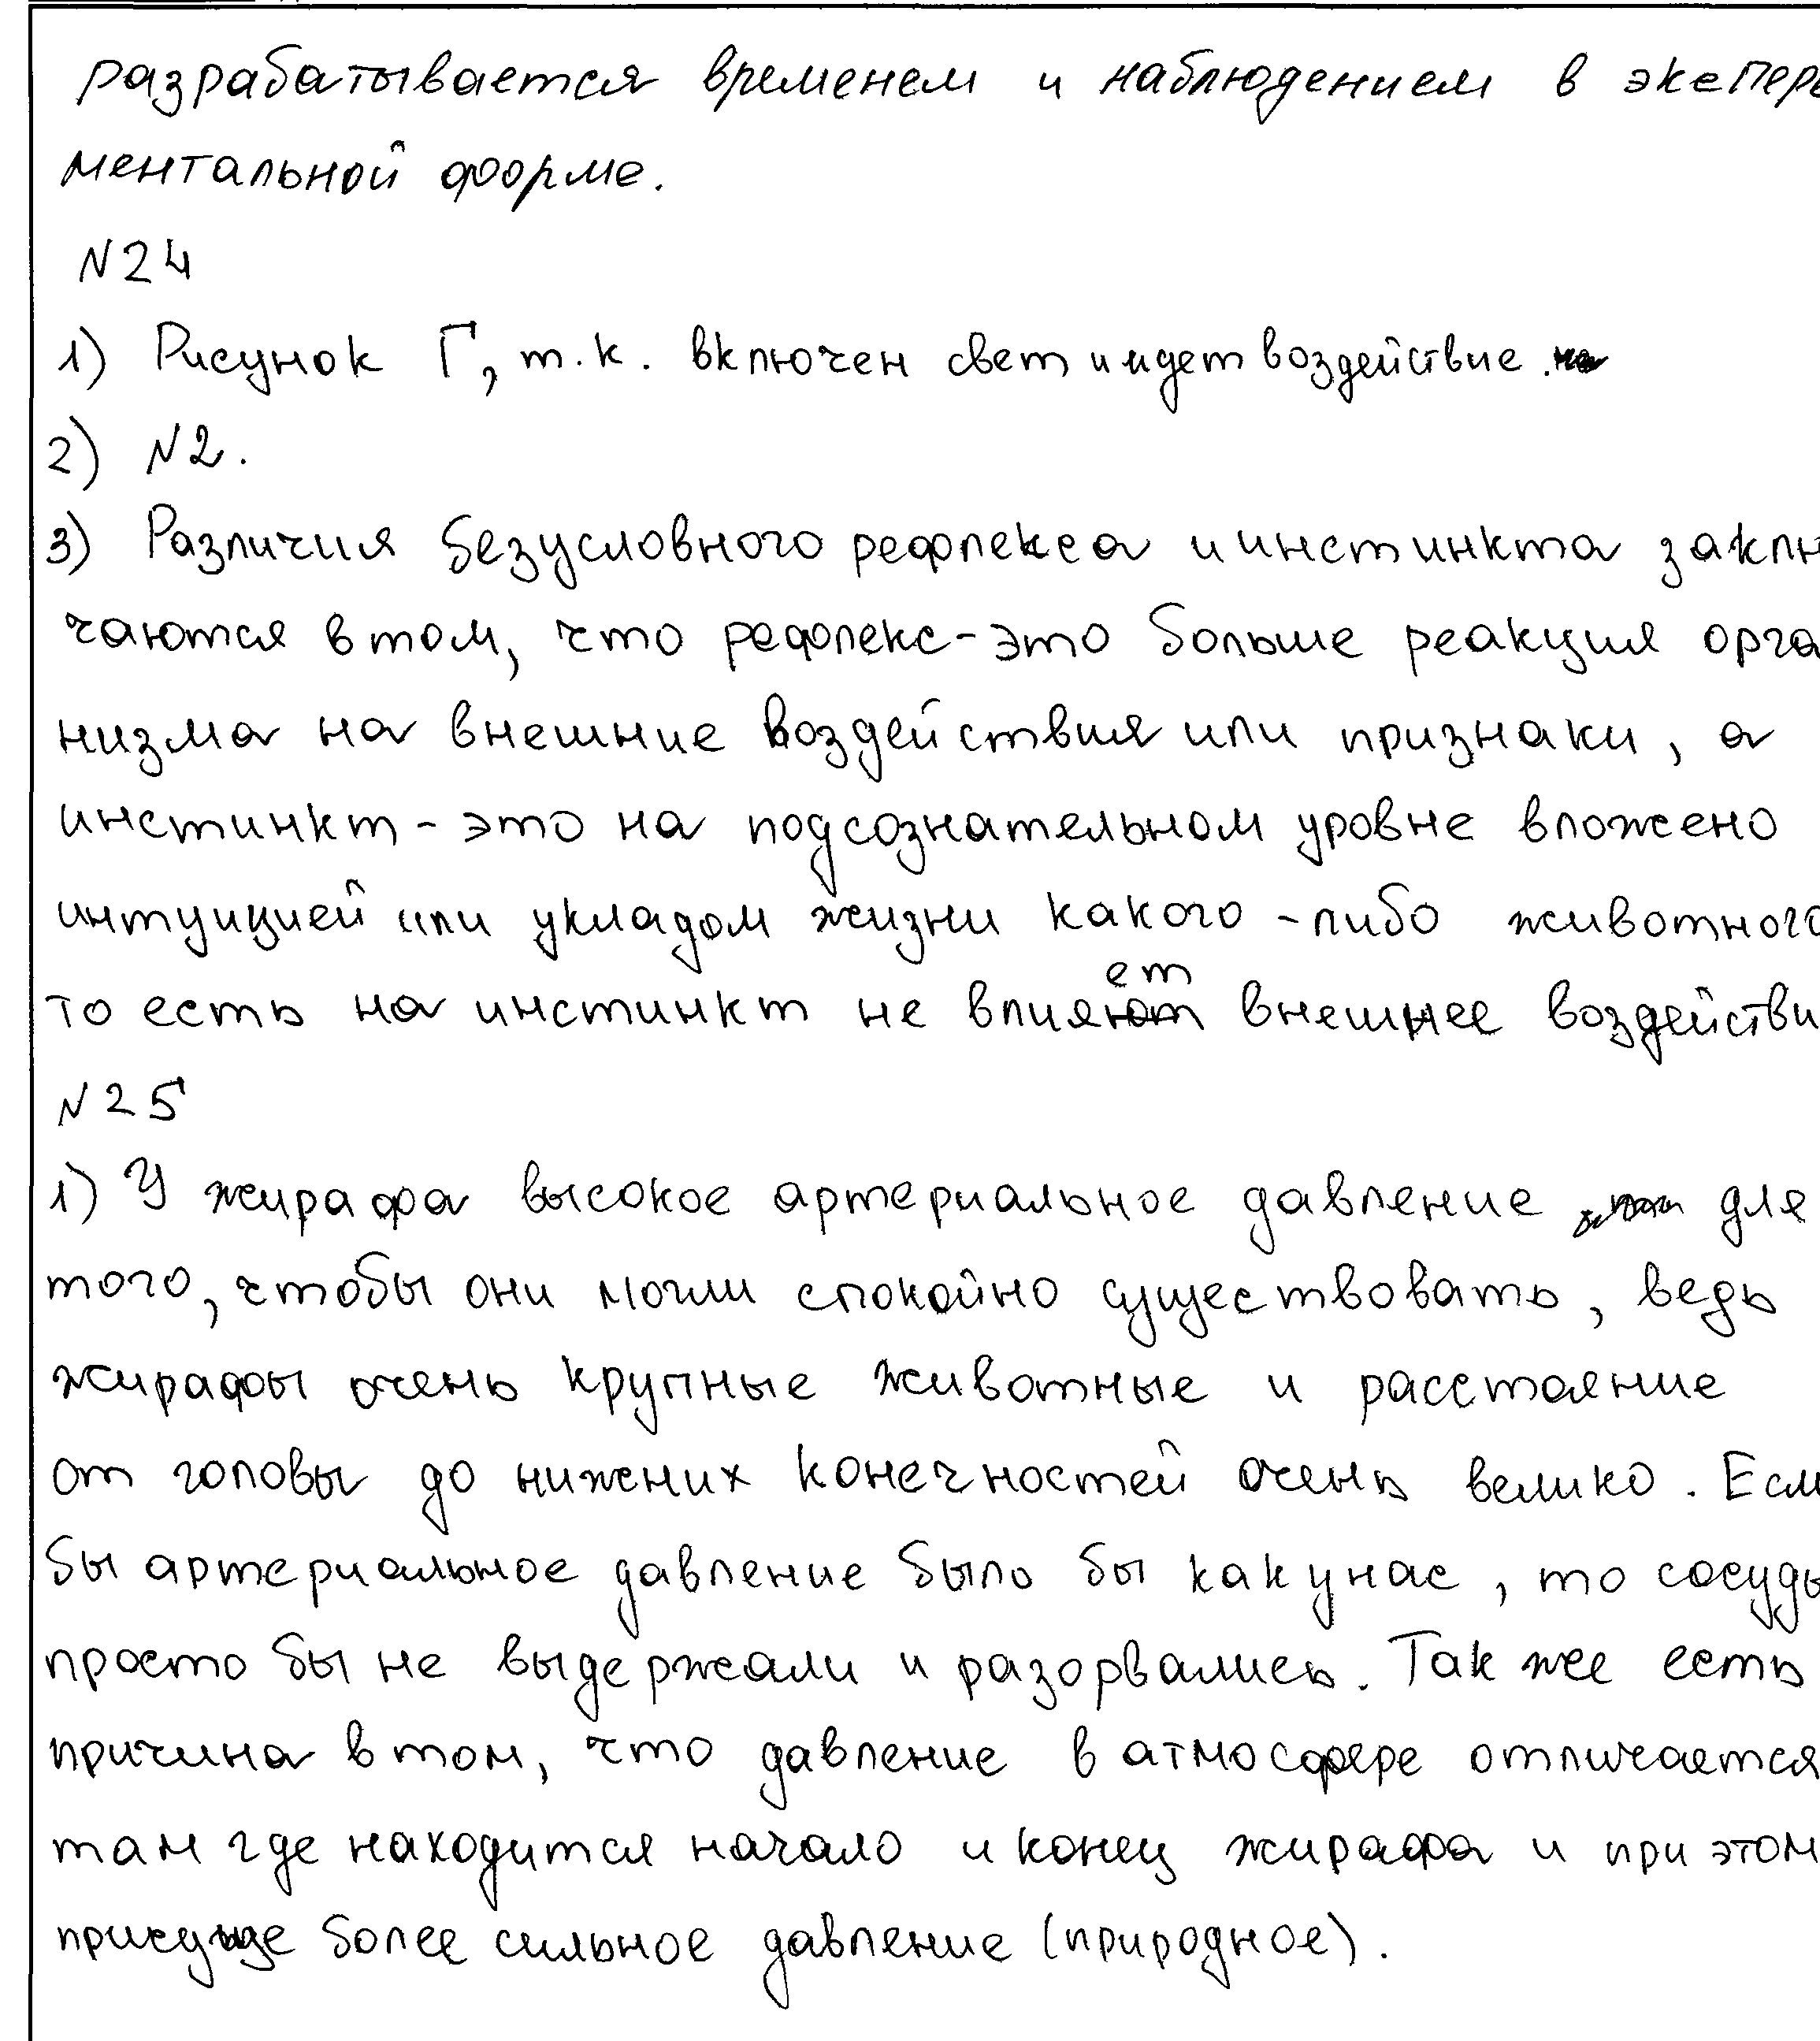 разрабатывается временем и наблюдением в экспери
ментальной форме.
N24
1) Рисунок Г, т.к. включен свет и идет воздействие.
2) N2.
3) Различия безусловного рефлекса и инстинкта заклю
чаются в том, что рефлекс-это больше реакция орга
низма на внешние воздействия или признаки, а
инстинкт - это на подсознательном уровне вложено
интуицией или укладом жизни какого-либо животного
то есть на инстинкт не влияет внешнее воздействи
N25
1) У жирафа высокое артериальное давление для
того, чтобы они могли спокойно существовать, ведь
жирафы очень крупные животные и расстояние
от головы до нижених конечностей очень велико. Если
бы артериальное давление было бы как у нас, то сосуды
просто бы не выдержали и разорвались. Так же есть
причина в том, что давление в атмосфере отличается
там где находится начало и конец жирафа и при этом
присуще более сильное давление (природное).